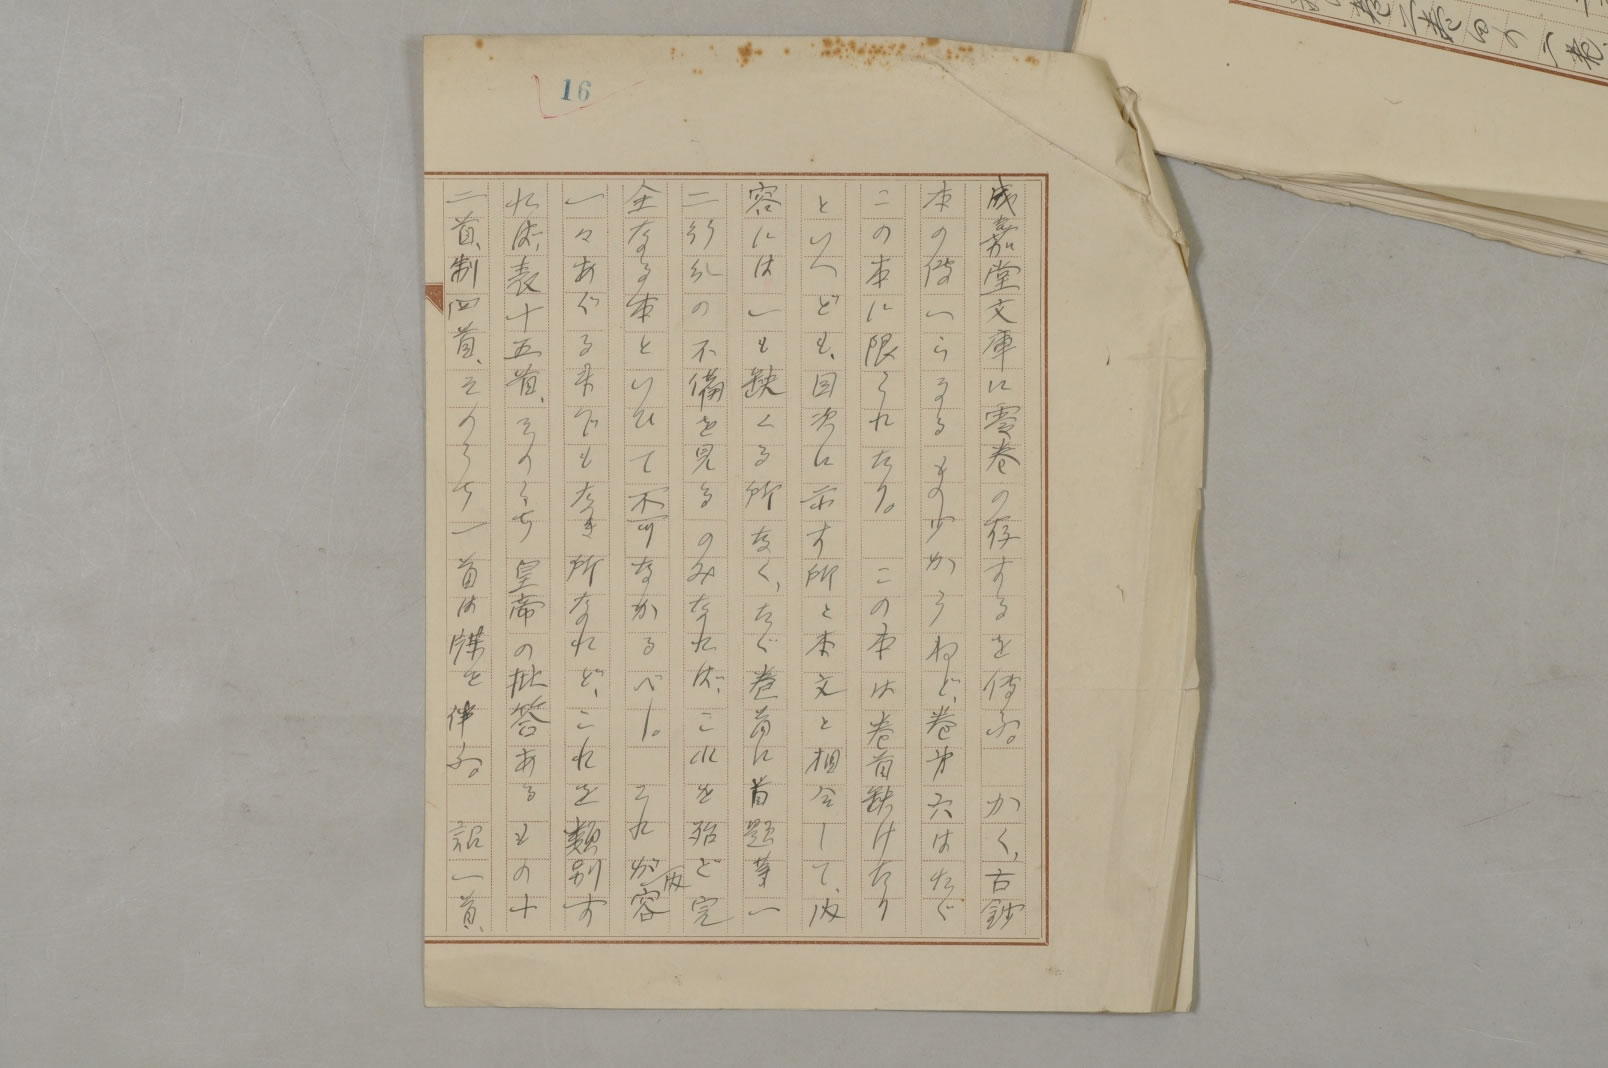 16
成嘉堂文庫に零巻の存するを傳ふ。かく、古鈔
本の傳へらるるもの少からねど、巻第六はたゞ
この本に限られたり。この本は巻首缺けたり
といへども、目次に示す所と本文と相合して、内
容には一も缺くる所なく、たゞ巻首に首題等一
二行かの不備を見るのみなれば、これを殆ど完
全なる本といひて不可なかるべし。これが内容
一々あぐるまでもなき所なれど、これを類別す
れば、表十五首、そのうち皇帝の批答あるもの十
二首、制四首、そのうち一首は牒を伴ふ。詔一首、